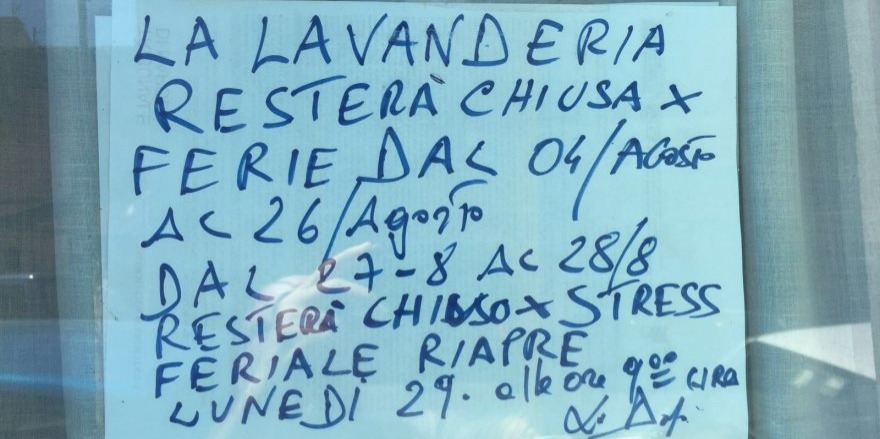 LA LAVANDERIA
RESTERÀ CHIUSA X
FERIE DAL 04/AGOSTO
AL 26/Agosto
DAL 27-8 AL 28/8
RESTERÀ CHIUSO X STRESS
FERIALE RIAPRE
LUNEDI 29. alle ore 9ºº CIRA